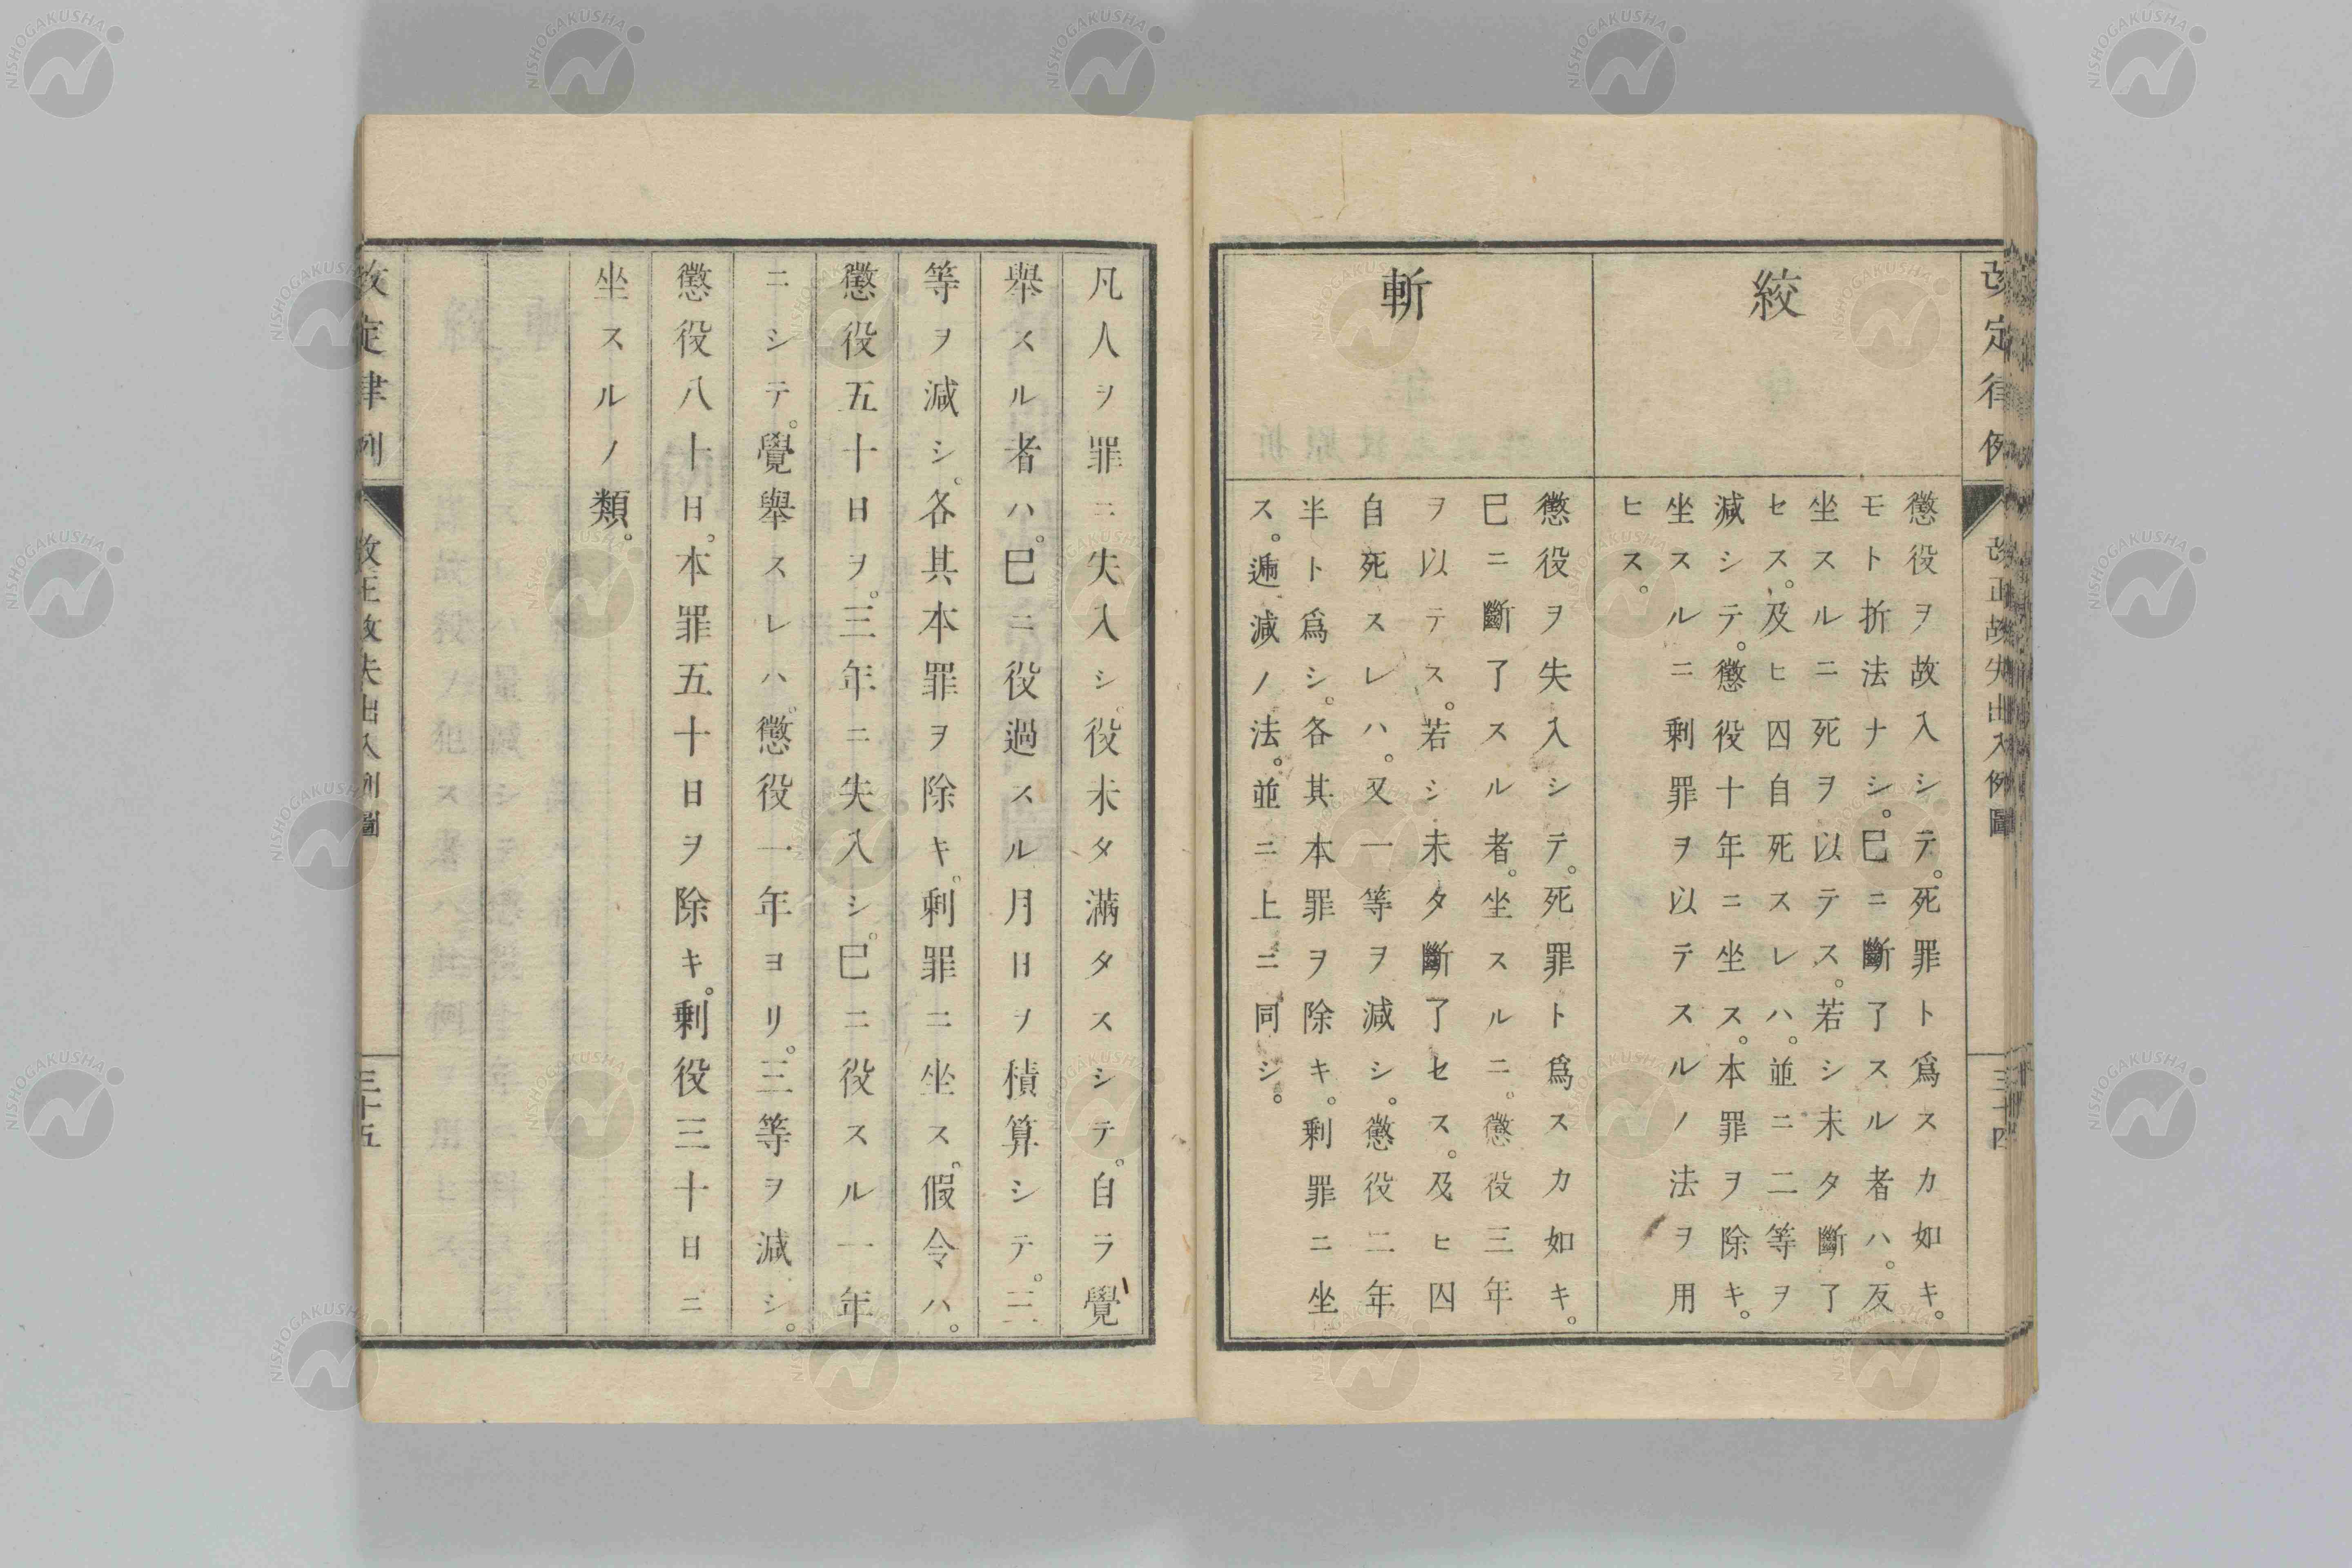 改定律例
改正故失出入例圖
三十四
絞
懲役ヲ故入シテ。死罪ト爲スカ如キ。
モト折法ナシ。巳ニ斷了スル者ハ。反
坐スルニ死ヲ以テス。若シ未タ斷了
セス。及ヒ囚自死スレハ。並ニ二等ヲ
減シテ。懲役十年ニ坐ス。本罪ヲ除キ。
坐スルニ剩罪ヲ以テスルノ法ヲ用
ヒス。
斬
懲役ヲ失入シテ。死罪ト爲スカ如キ。
巳ニ斷了スル者。坐スルニ。懲役三年
ヲ以テス。若シ未タ斷了セス。及ヒ囚
自死スレハ。又一等ヲ減シ。懲役二年
半ト爲シ。各其本罪ヲ除キ。剩罪ニ坐
ス。遞減ノ法。並ニ上ニ同シ。
凡人ヲ罪ニ失入シ。役未タ滿タスシテ。自ラ覺
舉スル者ハ。巳ニ役過スル月日ヲ積算シテ。三
等ヲ減シ。各其本罪ヲ除キ。剩罪ニ坐ス。假令ハ。
懲役五十日ヲ。三年ニ失入シ。巳ニ役スル一年
ニシテ。覺舉スレハ。懲役一年ヨリ。三等ヲ減シ。
懲役八十日。本罪五十日ヲ除キ。剩役三十日ニ
坐スルノ類。
改定律例
改正故失出入例圖
三十五